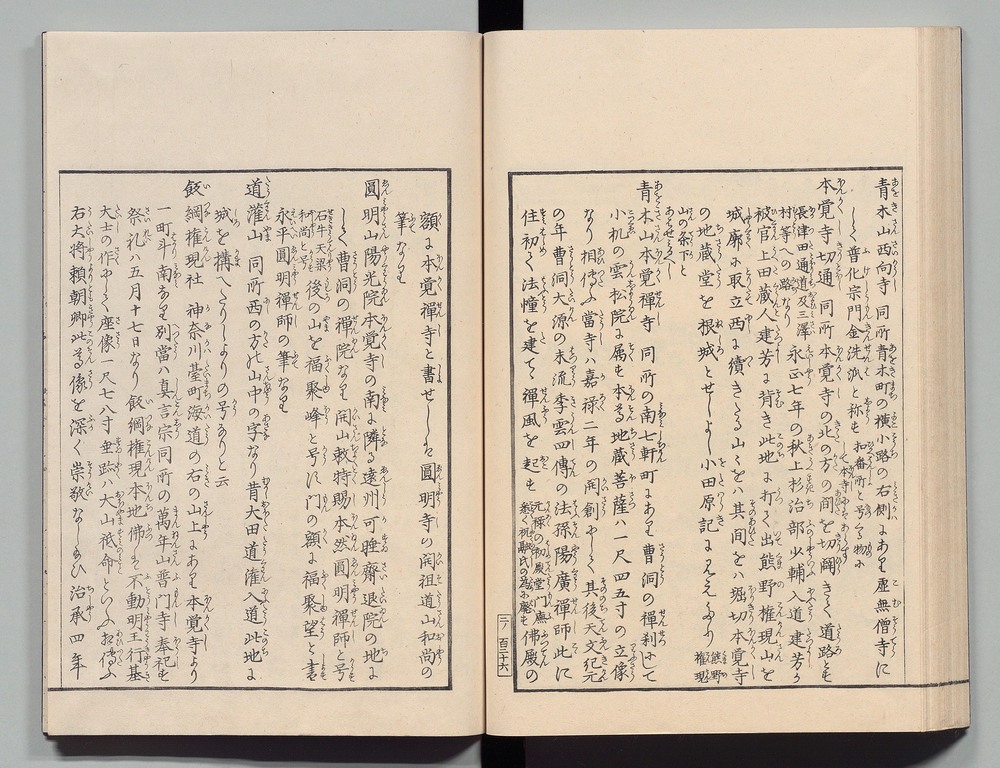 青木山西向寺 同所青木町の横小路の右側にあり虚無僧寺に
して普化宗門金洗派と称も
本覚寺切通 同所本覚寺の北の方の間を切闢きて道路とも
長津田通道及三澤
村等への路なり
永正七年の秋上杉治部少輔入道建芳が
被官上田蔵人建芳に背き此地に打て出熊野権現山を
城廓に取立西に續きたる山々をハ其間をハ堀切本覚寺
の地蔵堂を根城とせしよし小田原記に見えたり
熊野
権現
山の条下と
青木山本覚禅寺 同所の南七軒町にあり曹洞の禅刹にして
小机の雲松院に属も本尊地蔵菩薩ハ一尺四五寸の立像
なり相傳ふ當寺ハ嘉禄二年の開創にして其後天文紀元
の年曹洞大源の末流季雲四傳の法孫陽廣禅師此に
住初て法幢を建て禅風を起も
元禄の初殿堂門廡
悉く祝融氏の為に廃も
佛殿の
二ノ百三十六
額に本覚禅寺と書せしは圓明寺の開祖道山和尚の
筆なり
圓明山陽光院 本覚寺の南に隣る遠州可睡齋退院の地に
して曹洞の禅院なり開山敕特賜本然圓明禅師と号
石牛天梁
和尚と号
後の山を福聚峰と号に門の額に福聚望と書
永平圓明禅師の筆なり
道灌山 同所西の方の山中の字なり昔大田道灌入道此地に
城を構へたりしよりの号なりと云
飯綱権現社 神奈川臺町海道の右の山上にあり本覚寺より
一町斗南なり別當ハ真言宗同所の萬年山普門寺奉祀も
祭礼ハ五月十七日なり飯綱権現本地佛は不動明王行基
大士の作にして座像一尺七八寸垂跡ハ大山祇命といふ相傳ふ
右大将頼朝卿此尊像を深く崇敬なしたまひ治承四年